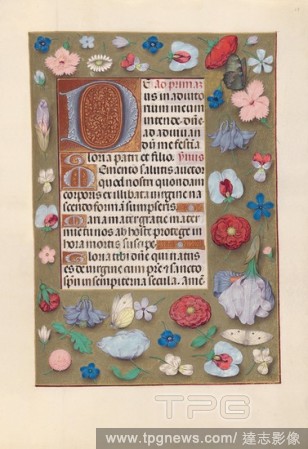 D E ao primaz
us in adiuto
rium meum
intende. dñe
ad adiuuan
dum me festia
Gloria patri et filio. ymus
Memento salutis auctor
quod nostri quondam
corporis ex illibata uirgine na
scendo formam sumpseris.
Maria mater gratie mater
mie tu nos ab hoste protege in
hora mortis suscipe.
Gloria tibi dñe qui natus
es de uirgine cum prē et sancto
spū in sempiterna secula. Amē
TPG
www.tpgnews.com/達志影像